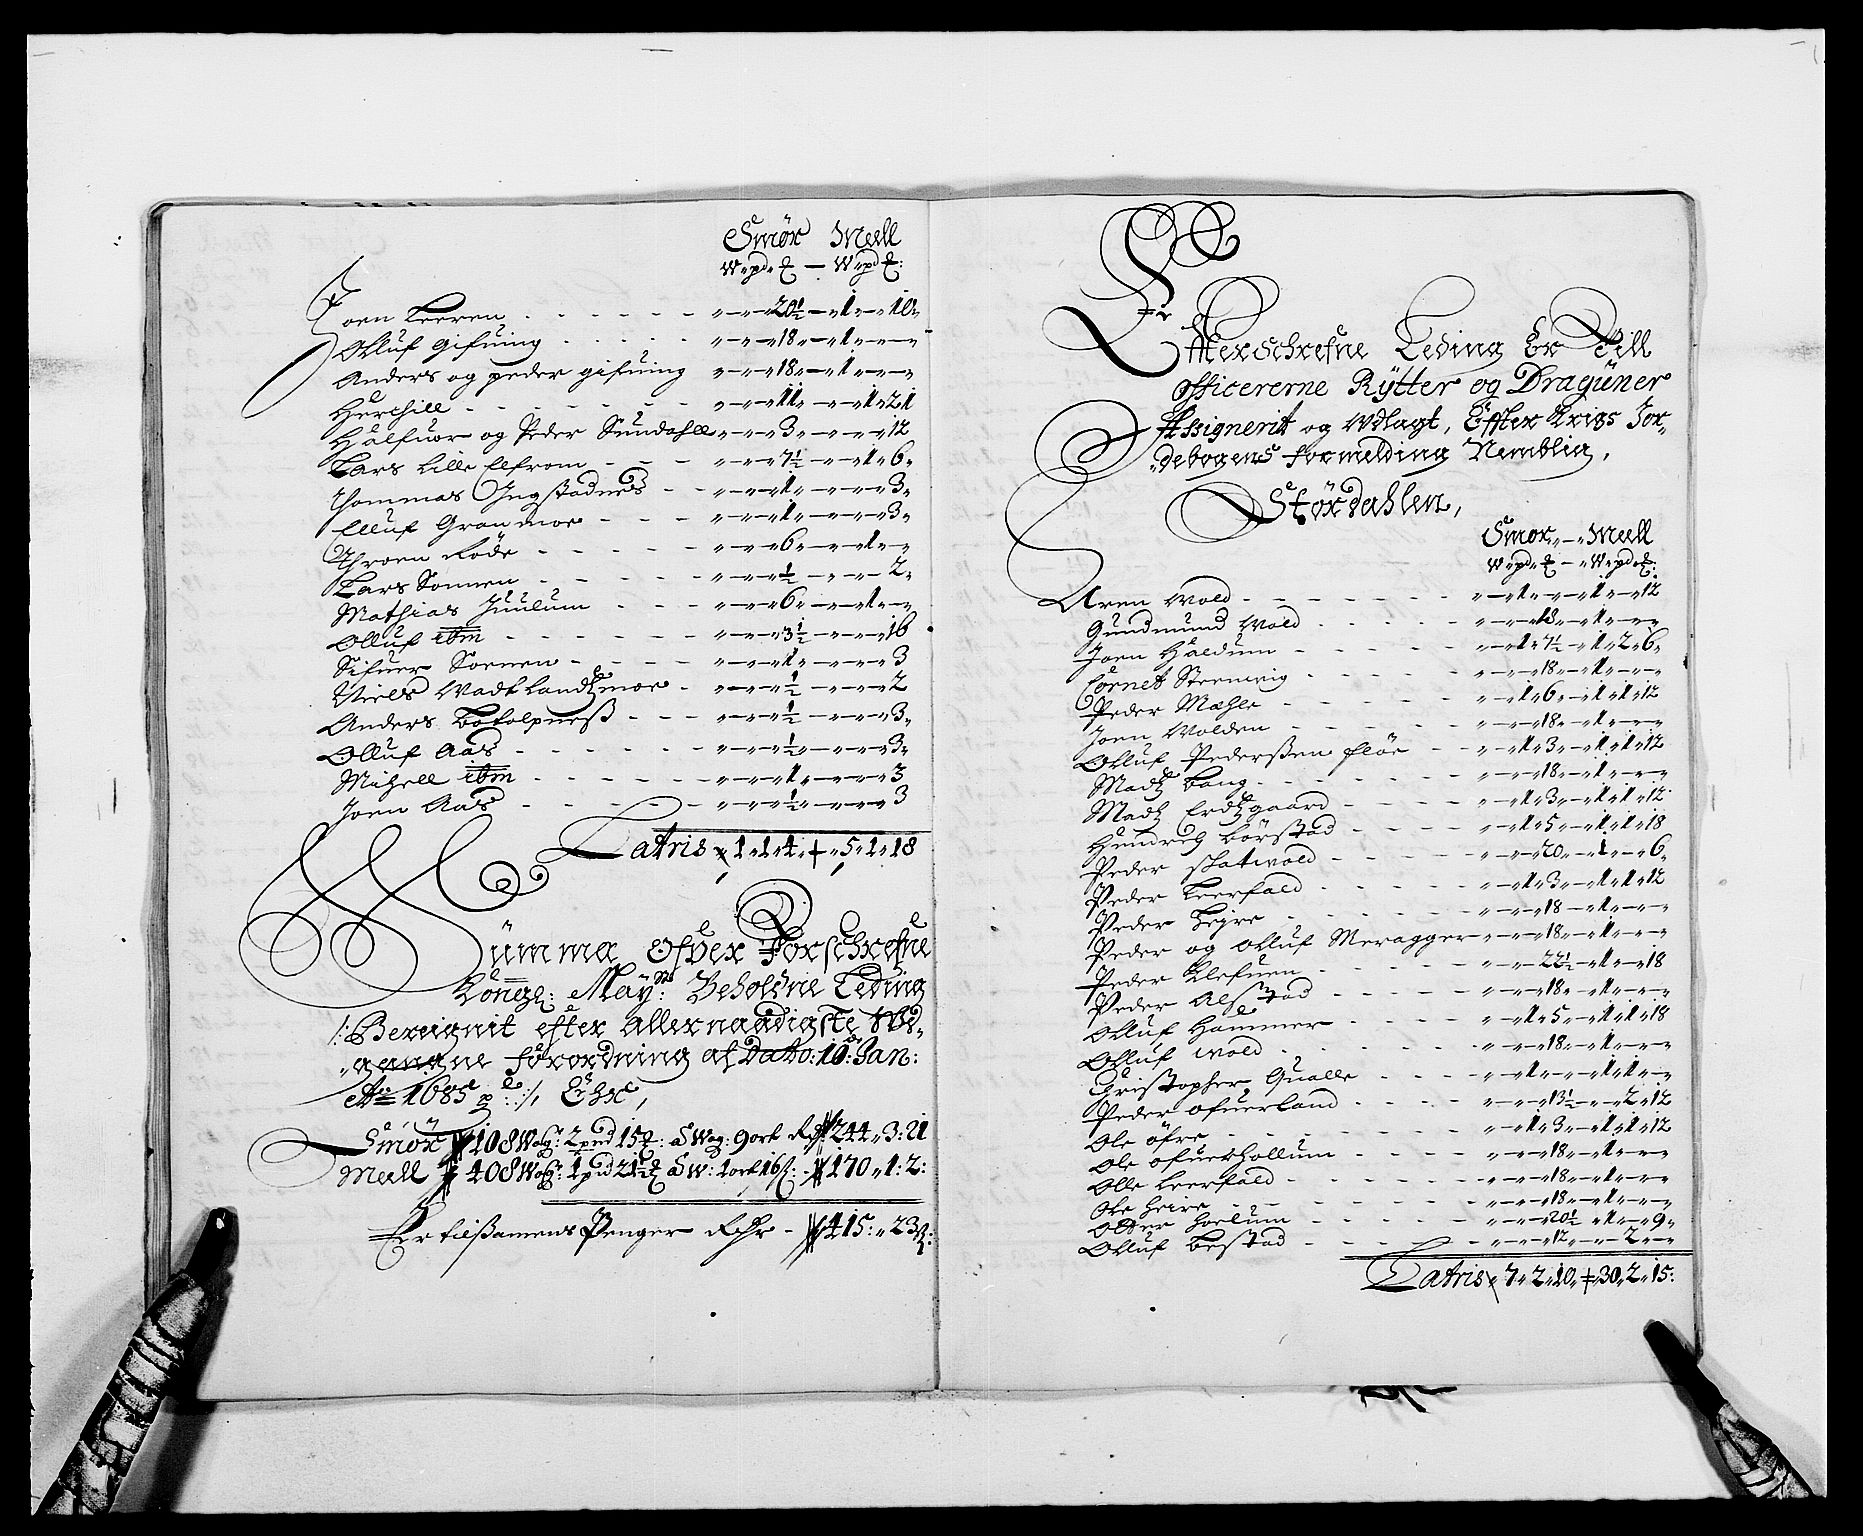 Smör Meell
W„pd„℔ — W„pd„℔:
Joen Leeren - - - - - - „—„—„20½—„1„—„10„
Olluf Gifuing - - - - - „—„—„18„—„1„—„—„
Anders og peder gifuing „—„—„18„—„1„—„—„
Hurchill - - - - - - - „—„—„11„—„1„21
Halfuor og Peder Sundahll „—„—„3„—„—„12
Lars Lille Elfrom - - - „—„—„7½—„—„1„6„
Thommas Ingstadnes - - „—„—„1„—„—„3„
Elluf Granmoe - - - „—„—„1„—„—„3„
Throen Röde - - - - - „—„—„6„—„—„1„—„
Lars Sonnen - - - - - „—„—„½„—„—„2„
Mathias Juulum - - - „—„—„6„—„—„1„—„
Olluf ibm - - - - - - „—„—„3½—„—„16
Sifuer Soenen - - - - „—„—„1„—„—„3
Niels Wadtlandtzmoe - „—„—„½—„—„2
Anders Botolpneß - - - „—„—„½—„—„3„
Olluf Aas - - - - - - „—„—„½„—„—„3„
Mihell ibm - - - - - - „—„—„1„—„—„3
Joen Aas - - - - - - „—„—„½„—„—„3
Latris 1„1„4„ „5„1„18
Summa Ofver Forschrefne
Könngl: Mäy:st Beholdne Leding
/:Bereignit efter allernaadigste Wd-
„gangne förordning af Dato: 10: Jan:
Ao 1685 :/, Ehr,
Smör 108 Wog: 2 pnd 15 ℔: à Wog: 9 ort Rdr 244„3:21
Meell 408 Wog: 1 pnd 21½ ℔ à W: 1 ort 16 ß: - 170„1:2:
Er tilßamens Penger Rdr - 415:„23 ß:
Efterschrefne Leding Er Till
officererne Rytter og Dragüner
Assignerit og Wdlagt, Effter Krigs Jor„
„debogens formelding Nemblig,
Stördahlen,
Smör„—„Meell
W„pd„℔ — „W„pd„℔:
Aren Wold - - - - - - „—„1„—„—„1„—„12
Gundmund Wold - - - - „—„18„—„1„—„—„
Joen Haldum - - - - - „—„1„7½—„1„2„6„
Cornet Steenvig - - - - „—„—„18„—„1„—„—„
Peder Mæhle - - - - „—„1„6„—„1„1„12
Joen Wolden - - - - - „—„—„18„—„1„—„—„
Olluf Pederßen flöe - - „—„1„3„—„1„1„12
Madtz Bang - - - - - - „—„—„18„—„1„—„—„
Madtz Erdtzgaard - - - - „—„1„3„—„1„1„12
Hendrich Börstad - - - - „—„1„5„—„1„1„18
Peder skatwold - - - - - „—„—„20„—„1„—„6„
Peder Leerfald - - - - - „—„1„3„—„1„1„12
Peder Lejre - - - - - - „—„—„18„—„1„—„—„
Peder og olluf Meragger „—„—„18„—„1„—„—„
Peder Klefuen - - - - - „—„—„22½„—„1„—„18
Peder Alstad - - - - - „—„—„18„—„1„—„—„
Olluf Hammer - - - - „—„1„5„—„1„1„18
Olluf Wold - - - - - - „—„—„18„—„1„—„—„
Christopher Qualle - - - „—„1„—„—„1„1„—„
Peder ofuerland - - - - „—„—„13½—„—„2„12
Ole öfre - - - - - - - „—„1„3„—„1„1„12
Ole ofuerhollum - - - - „—„—„18„—„1„—„—„
Olle Leerfald - - - - - „—„—„18„—„1„—„—„
Ole Heire - - - - - - „—„—„18„—„1„—„—„
Otter hoelum - - - - - „—„—„20½„—„1„—„9„
Olluf Bestad - - - - - „—„—„12„—„—„2„—„
Latris„ 7„2„10„ 30„2„15: